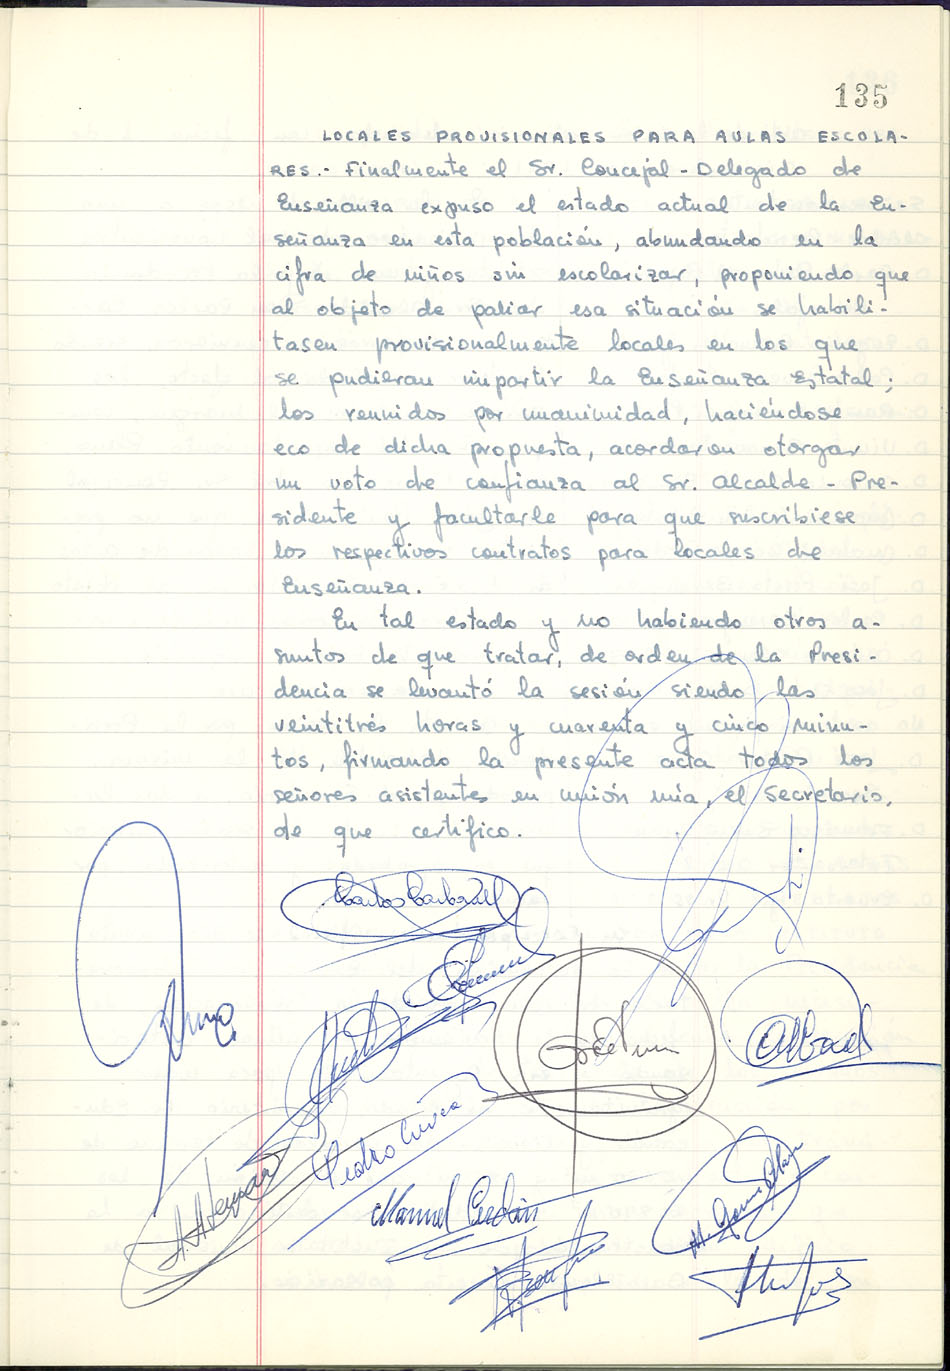 135
LOCALES PROVISIONALES PARA AULAS ESCOLA-
RES.- Finalmente el Sr. Concejal - Delegado de
Enseñanza expuso el estado actual de la En-
señanza en esta población, abundando en la
cifra de niños sin escolarizar, proponiendo que
al objeto de paliar esa situación se habili-
tasen provisionalmente locales en los que
se pudieran impartir la Enseñanza Estatal;
los reunidos por unanimidad, haciéndose
eco de dicha propuesta, acordaron otorgar
un voto de confianza al Sr. Alcalde - Pre-
sidente y facultarle para que suscribiese
los respectivos contratos para locales de
Enseñanza.
En tal estado y no habiendo otros a-
suntos de que tratar, de orden de la Presi-
dencia se levantó la sesión siendo las
veintitrés horas y cuarenta y cinco minu-
tos, firmando la presente acta todos los
señores asistentes en unión mía, el Secretario,
de que certifico.
Carlos Carbonell
Pedro
Manuel